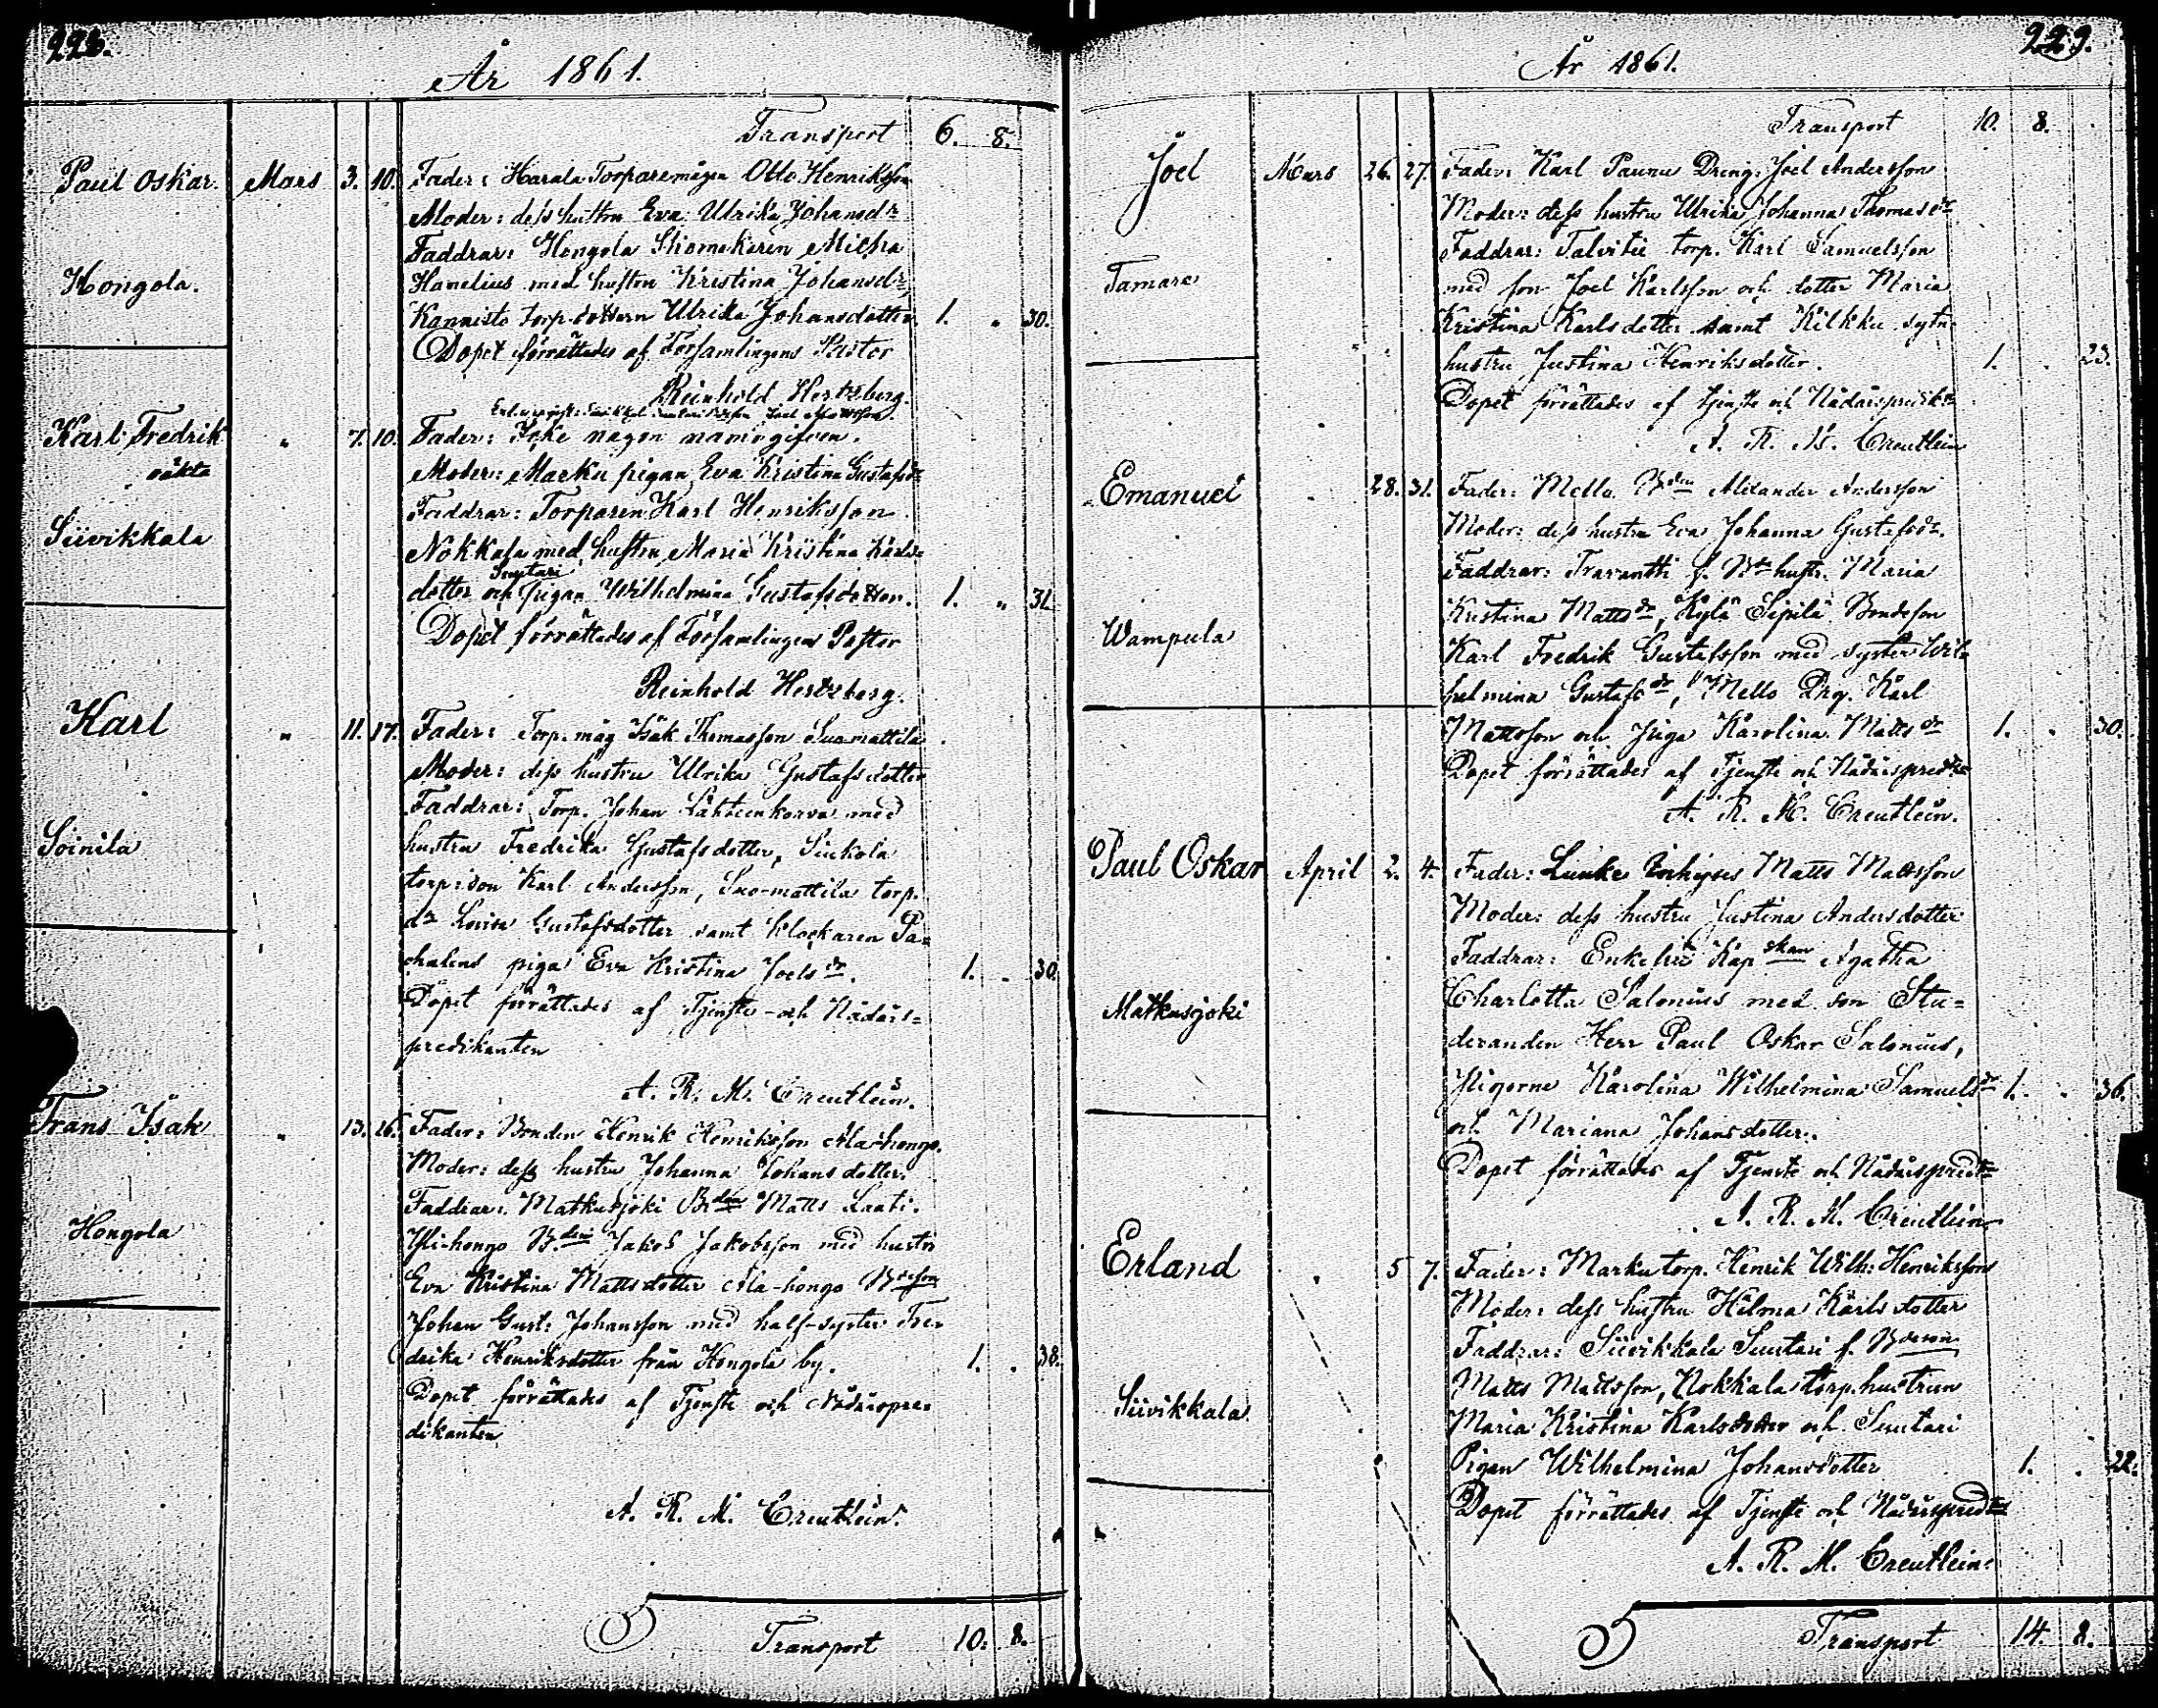 228.
År 1861.
Transport 6. 8.
Paul Oskar. Mars 3. 10. Fader: Harala Torparemågen Otto Henriksson
Moder: dess hustru Eva Ulrika Johansdr
Faddrar: Hongola Skomakaren Micha
Hongola. Hanelius med hustru Kristina Johansdr,
Kannisto torp. dottern Ulrika Johansdotter. 1. " 30.
Dopet förrättades af Församlingens Pastor
Reinhold Hertzberg.
Joel Mattsson.
Karl Fredrik " 7. 10. Fader: Icke någon namngifven.
oäkta Moder: Marku pigan Eva Kristina Gustafsdr
Faddrar: Torparen Karl Henriksson
Siivikkala Nokkala med hustru Maria Kristina Karls=
Suutari
dotter och pigan Wilhelmina Gustafsdotter. 1. " 31.
Dopet förrättades af Församlingens Pastor
Reinhold Hertzberg.
Karl " 11. 17. Fader: Torp. måg Isak Thomasson Suomattila
Moder: dess hustru Ulrika Gustafsdotter
Faddrar: Torp. Johan Lähteenkorva med
Soinila hustru Fredrika Gustafsdotter, Sinkola
torp: son Karl Andersson, Suo-mattila torp.
dr Lovisa Gustafsdotter samt klockaren Pa=
chalens piga Eva Kristina Joelsdr. 1. " 30.
Dopet förrättades af Tjenste- och Nådårs=
predikanten
A. R. M. Creutlein.
Frans Isak " 13. 16. Fader: Bonden Henrik Henriksson Ala-hongo.
Moder: dess hustru Johanna Johansdotter.
Faddrar: Matkusjoki Bden Matts Laati.
Hongola Yli-hongo Bden Jakob Jakobsson med hustru
Eva Kristina Mattsdotter Ala-hongo Bdeson
Johan Gust: Johansson med half-syster Fre=
drika Henriksdotter från Hongola by. 1. " 38.
Dopet förrättades af Tjenste och Nådårspre=
dikanten
A. R. M. Creutlein.
Transport 10. 8.
229.
År 1861.
Transport 10. 8.
Joel Mars 26. 27. Fader: Karl Paunu Dräng: Joel Andersson
Moder: dess hustru Ulrika Johanna Thomasdr
Faddrar: Talvitie torp. Karl Samuelsson
Tamare med son Joel Karlsson och dotter Maria
Kristina Karlsdotter samt Kilkku sytn.
hustru Justina Henriksdotter. 1. " 23.
Dopet förrättades af tjenste och Nådårspredikn
A. R. M. Creutlein
Emanuel " 28. 31. Fader: Mello Bden Alexander Andersson
Moder: dess hustru Eva Johanna Gustafsdr.
Faddrar: Travantti f. Bde hustr. Maria
Wampula Kristina Mattsdr, Kylä Sepilä Bondeson
Karl Fredrik Gustafsson med syster Wil=
helmina Gustafsdr, Mello Drg. Karl
Mattsson och Piga Karolina Mattsdr 1. " 30.
Dopet förrättades af Tjenste och Nådårspred.
A. R. M. Creutlein.
Paul Oskar April 2. 4. Fader: Lunke Inhyses Matts Mattsson
Moder: dess hustru Justina Andersdotter
Faddrar: Enkefru Kapskan Agatha
Matkusjoki Charlotta Salonius med son Stu=
deranden Herr Paul Oskar Salonius,
Pigorne Karolina Wilhelmina Samuelsdr 1. " 36.
och Mariana Johansdotter.
Dopet förrättades af Tjenste och Nådårspredt
A. R. M. Creutlein
Erland " 5 7. Fader: Marku torp. Henrik Wilh: Henriksson
Moder: dess hustru Hilma Karlsdotter
Faddrar: Siivikkala Suutari f. Bdeson
Siivikkala Matts Mattsson, Nokkala torp.hustrun
Maria Kristina Karlsdotter och Suutari
Pigan Wilhelmina Johansdotter 1. " 22.
Dopet förrättades af Tjenste och Nådårspredt
A. R. M. Creutlein.
Transport 14. 8.